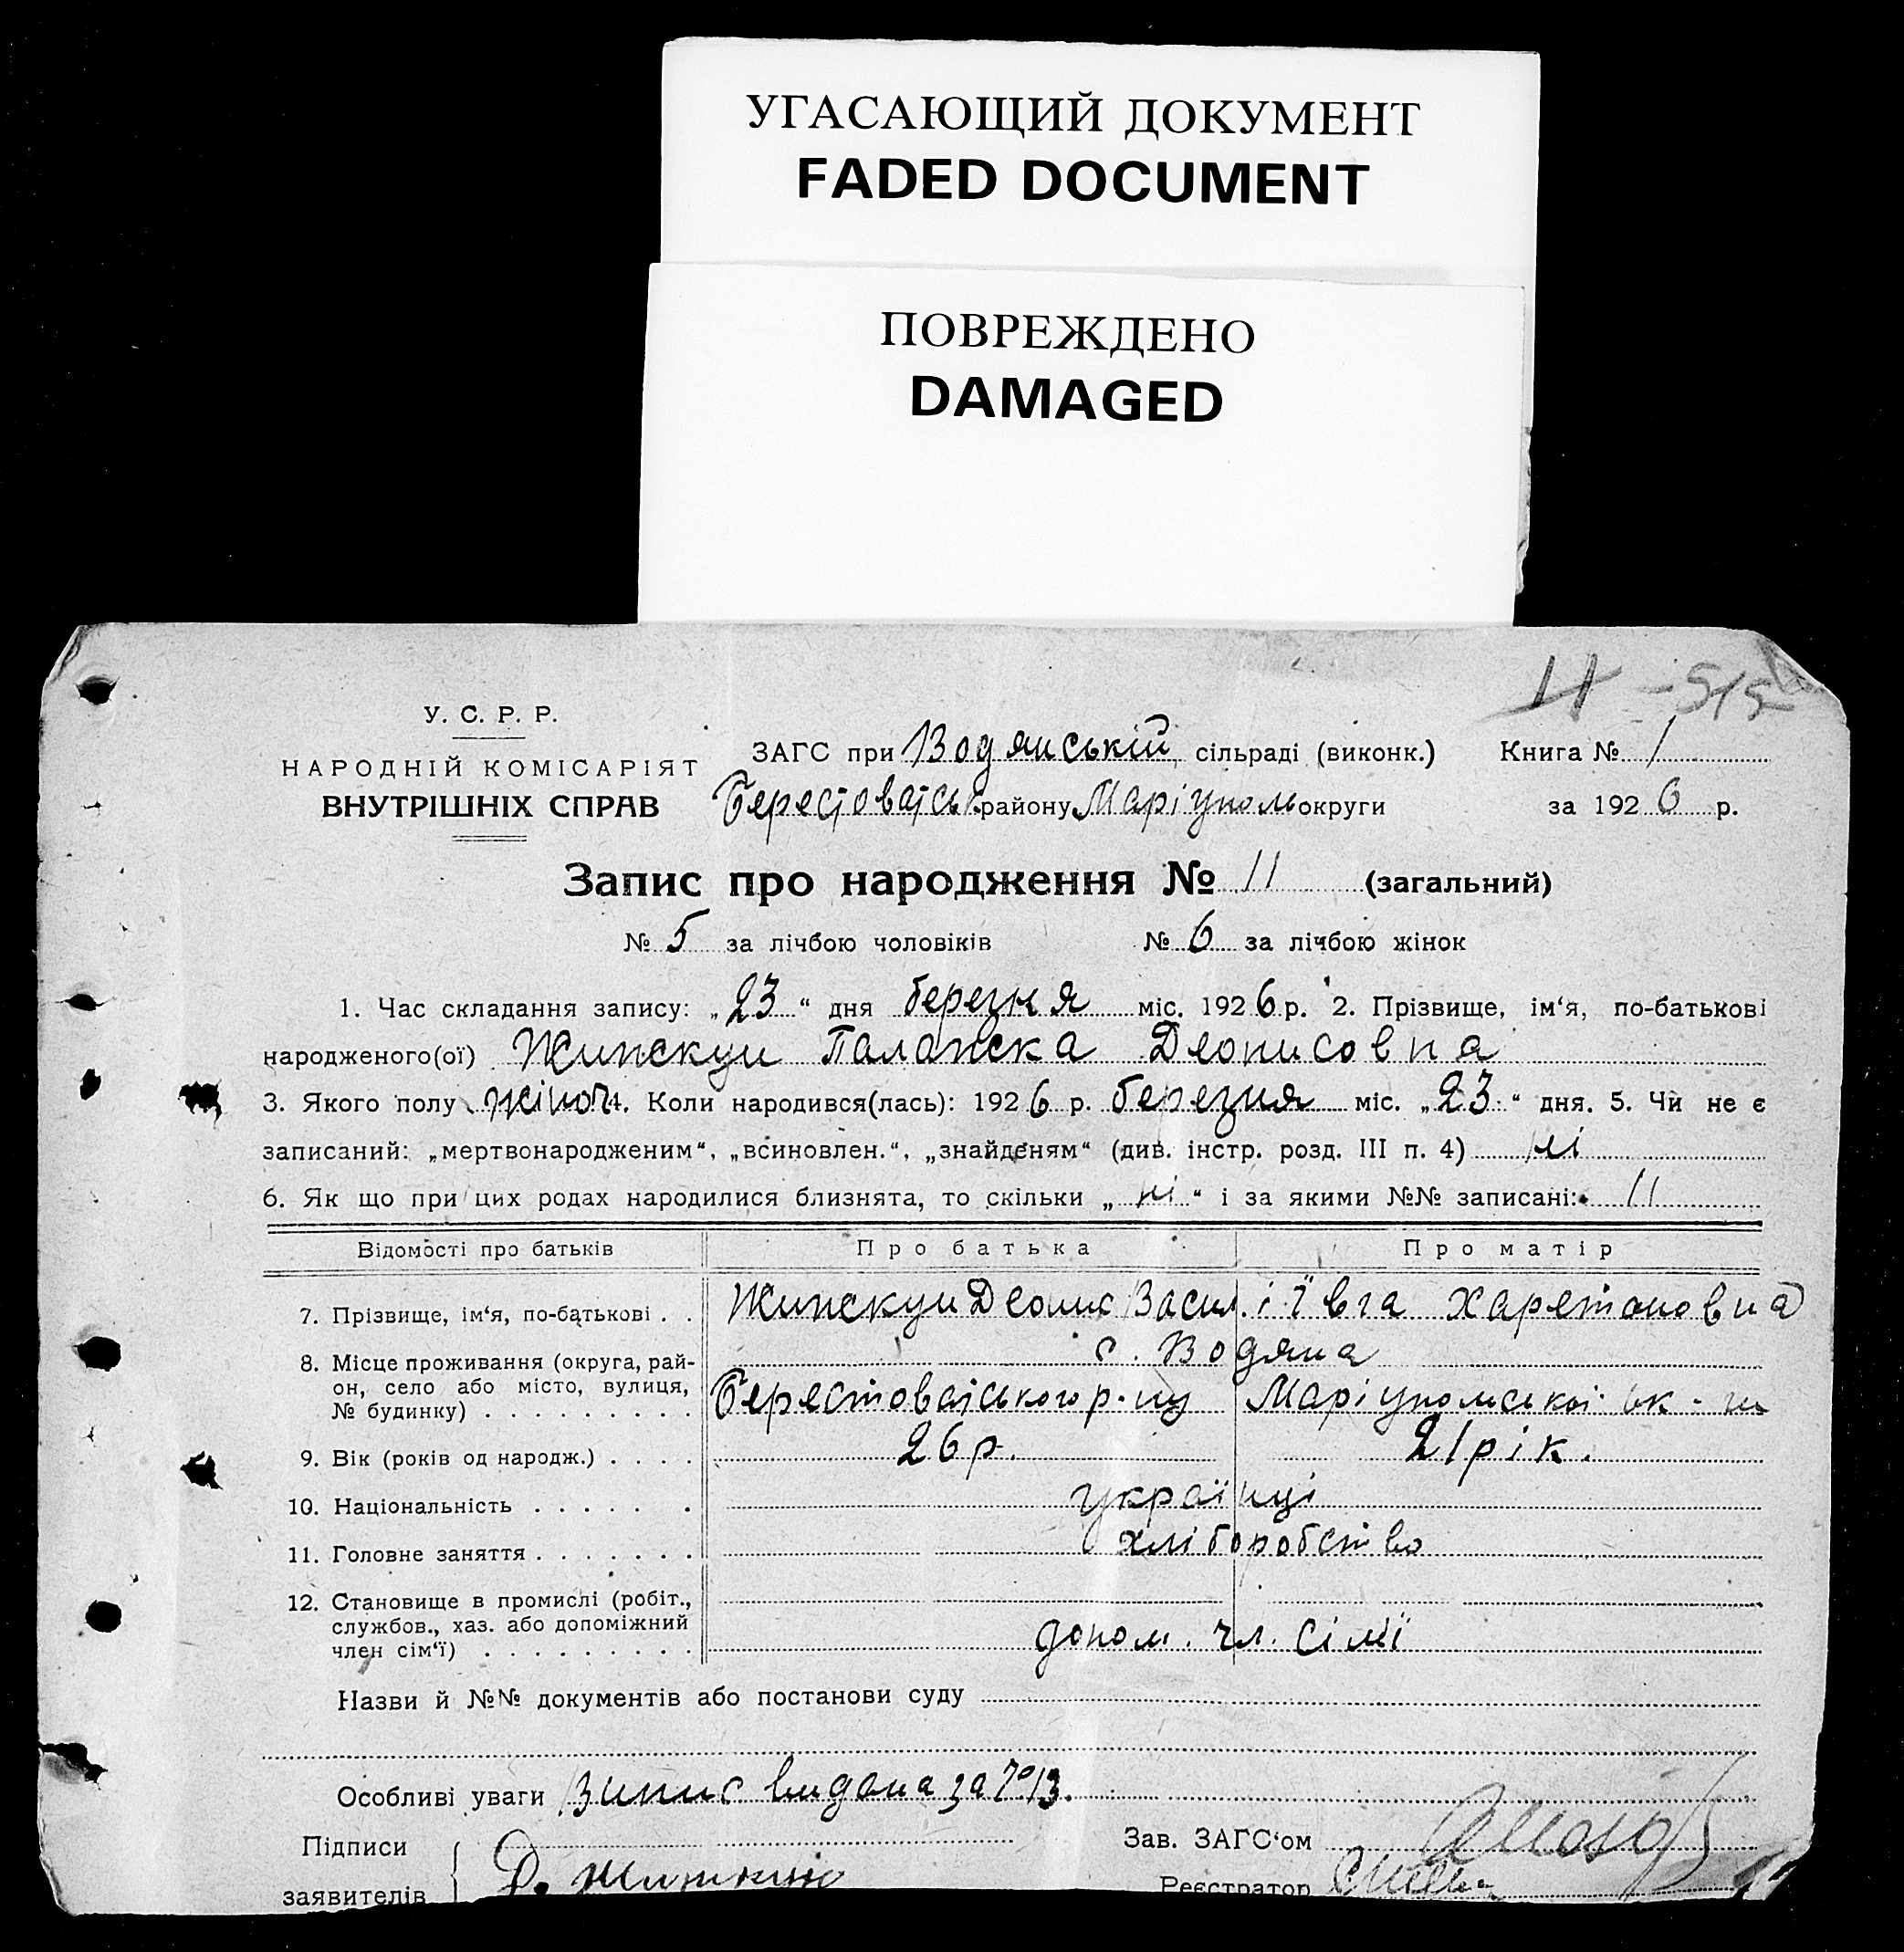 УГАСАЮЩИЙ ДОКУМЕНТ
FADED DOCUMENT
ПОВРЕЖДЕНО
DAMAGED
У. С. Р. Р.
НАРОДНІЙ КОМІСАРІЯТ
ВНУТРІШНІХ СПРАВ
ЗАГС при Водянській сільраді (виконк.) Книга № 1
Берестоватськ. району Маріуполь округи за 1926 р.
Запис про народження № 11 (загальний)
№ 5 за лічбою чоловіків № 6 за лічбою жінок
1. Час складання запису: „23“ дня березня міс. 1926 р. 2. Прізвище, ім‘я, по-батькові
народженого(ої) Палажка Деонисовна
3. Якого полу жіноч 4. Коли народився(лась): 1926 р. березня міс. „23“ дня. 5. Чи не є
записаний: „мертвонародженим“, „всиновлен.“, „знайденям“ (див. інстр. розд. III п. 4) ні
6. Як що при цих родах народилися близнята, то скільки „ні“ і за якими №№ записані: 11
Відомості про батьків Про батька Про матір
7. Прізвище, ім‘я, по-батькові . . Деонис Васил. і Ївга Харетоновна
8. Місце проживання (округа, рай-
он, село або місто, вулиця,
№ будинку) . . . . . . . . .
с. Водяна
Берестоватського р-ну Маріупольської ок-ги
9. Вік (років од народж.) . . . . 26 р. 21 рік.
10. Національність . . . . . . . українці
11. Головне заняття . . . . . . . хліборобство
12. Становище в промислі (робіт.,
службов., хаз. або допоміжний
член сім‘ї) . . . . . . . . .
допом. чл. сімї
Назви й №№ документів або постанови суду
Особливі уваги Випис видана за № 13.
Підписи
заявителів
Д.
Зав. ЗАГС‘ом
Реєстратор